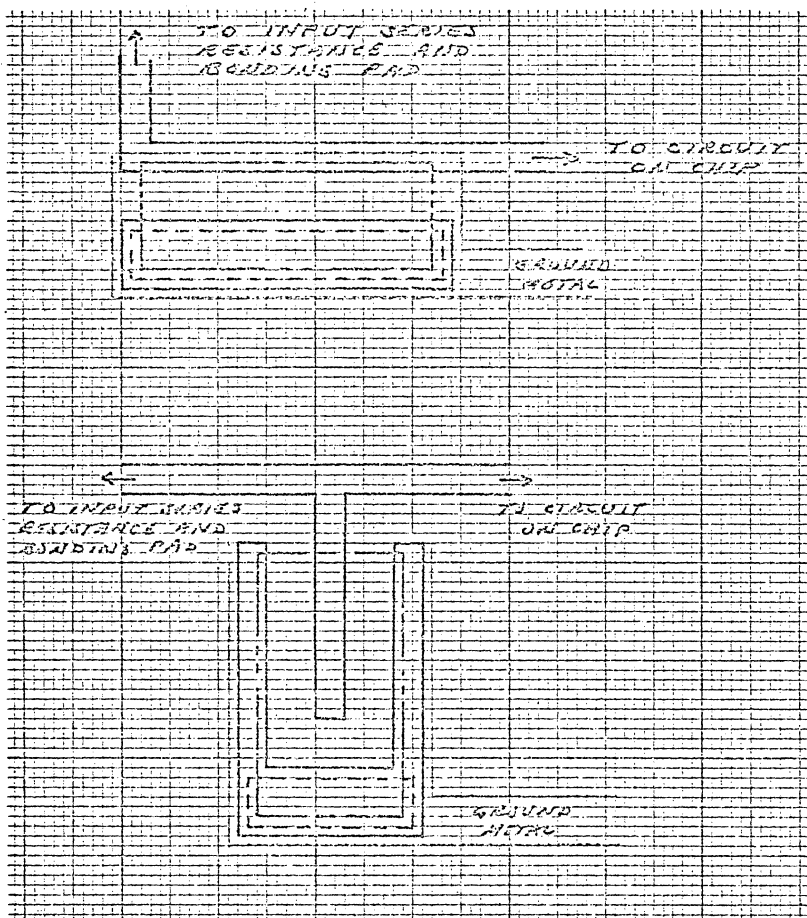 TO INPUT SERIES
RESISTANCE AND
BONDING PAD
TO CIRCUIT
ON CHIP
GROUND
METAL
TO INPUT SERIES
RESISTANCE AND
BONDING PAD
TO CIRCUIT
ON CHIP
GROUND
METAL